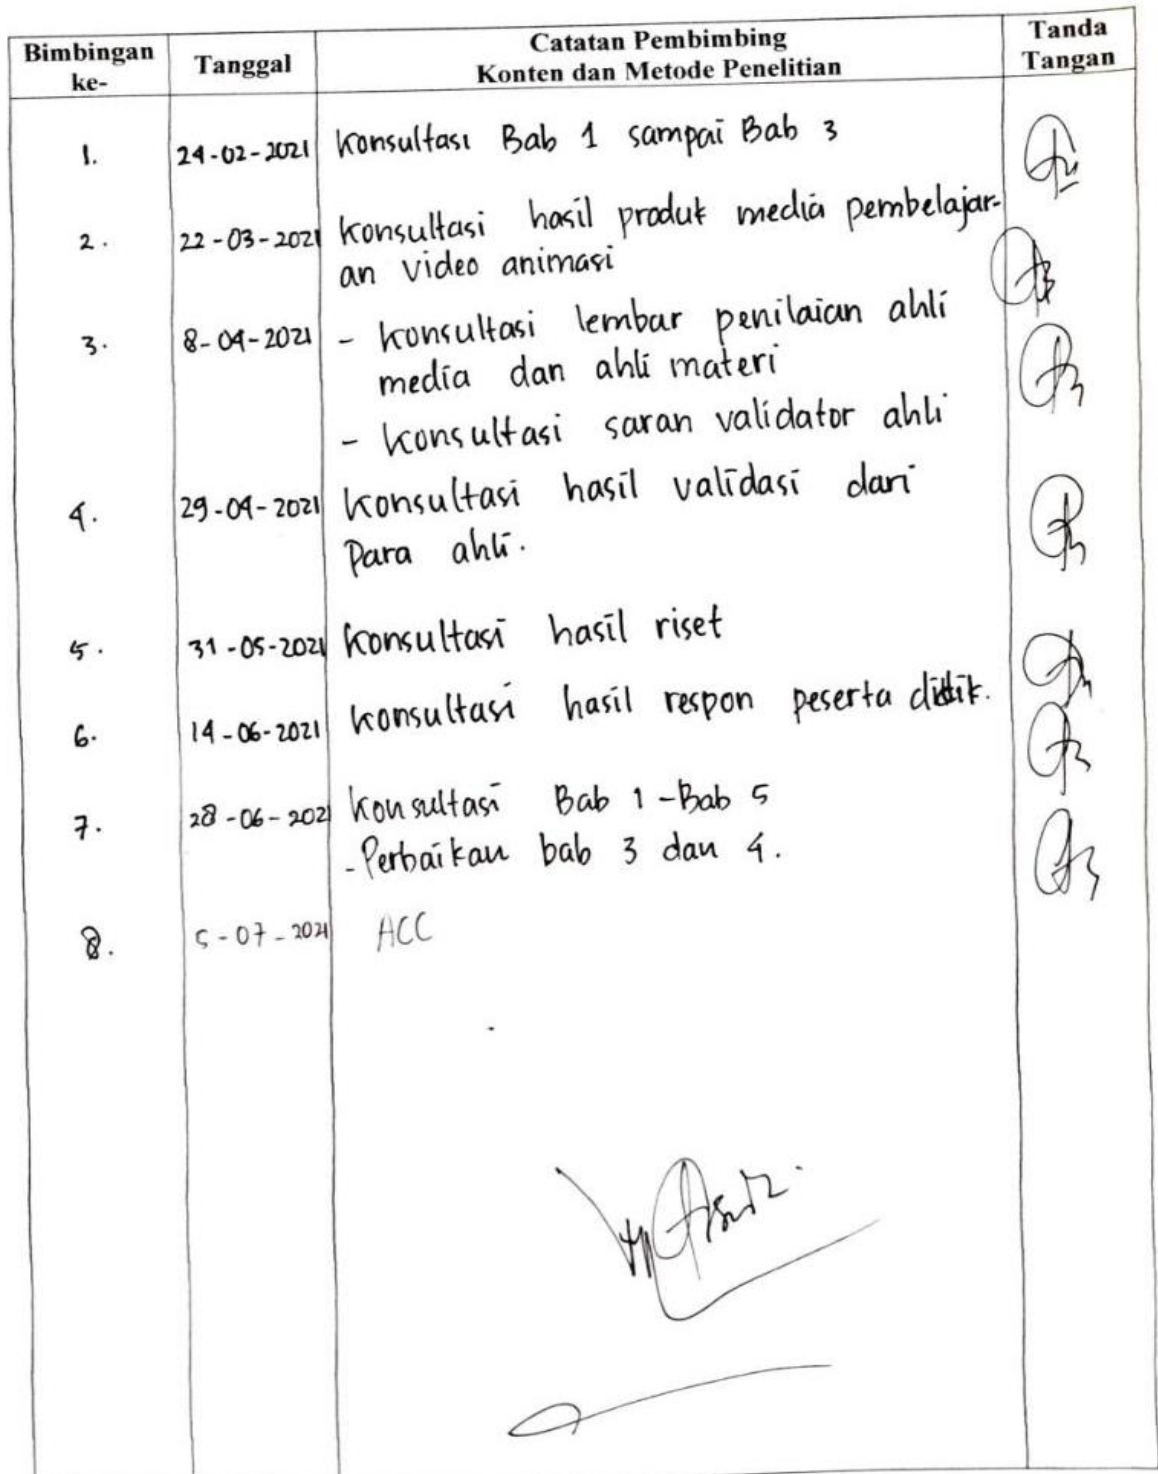 Bimbingan ke- Tanggal Catatan Pembimbing Konten dan Metode Penelitian Tanda Tangan
1. 24-02-2021 Konsultasi Bab 1 sampai Bab 3
2. 22-03-2021 Konsultasi hasil produk media pembelajar-
an video animasi
3. 8-04-2021 - Konsultasi lembar penilaian ahli
media dan ahli materi
- Konsultasi saran validator ahli
4. 29-04-2021 Konsultasi hasil validasi dari
Para ahli.
5. 31-05-2021 Konsultasi hasil riset
6. 14-06-2021 Konsultasi hasil respon peserta didik.
7. 28-06-2021 Konsultasi Bab 1 - Bab 5
- Perbaikan bab 3 dan 4.
8. 5-07-2021 ACC